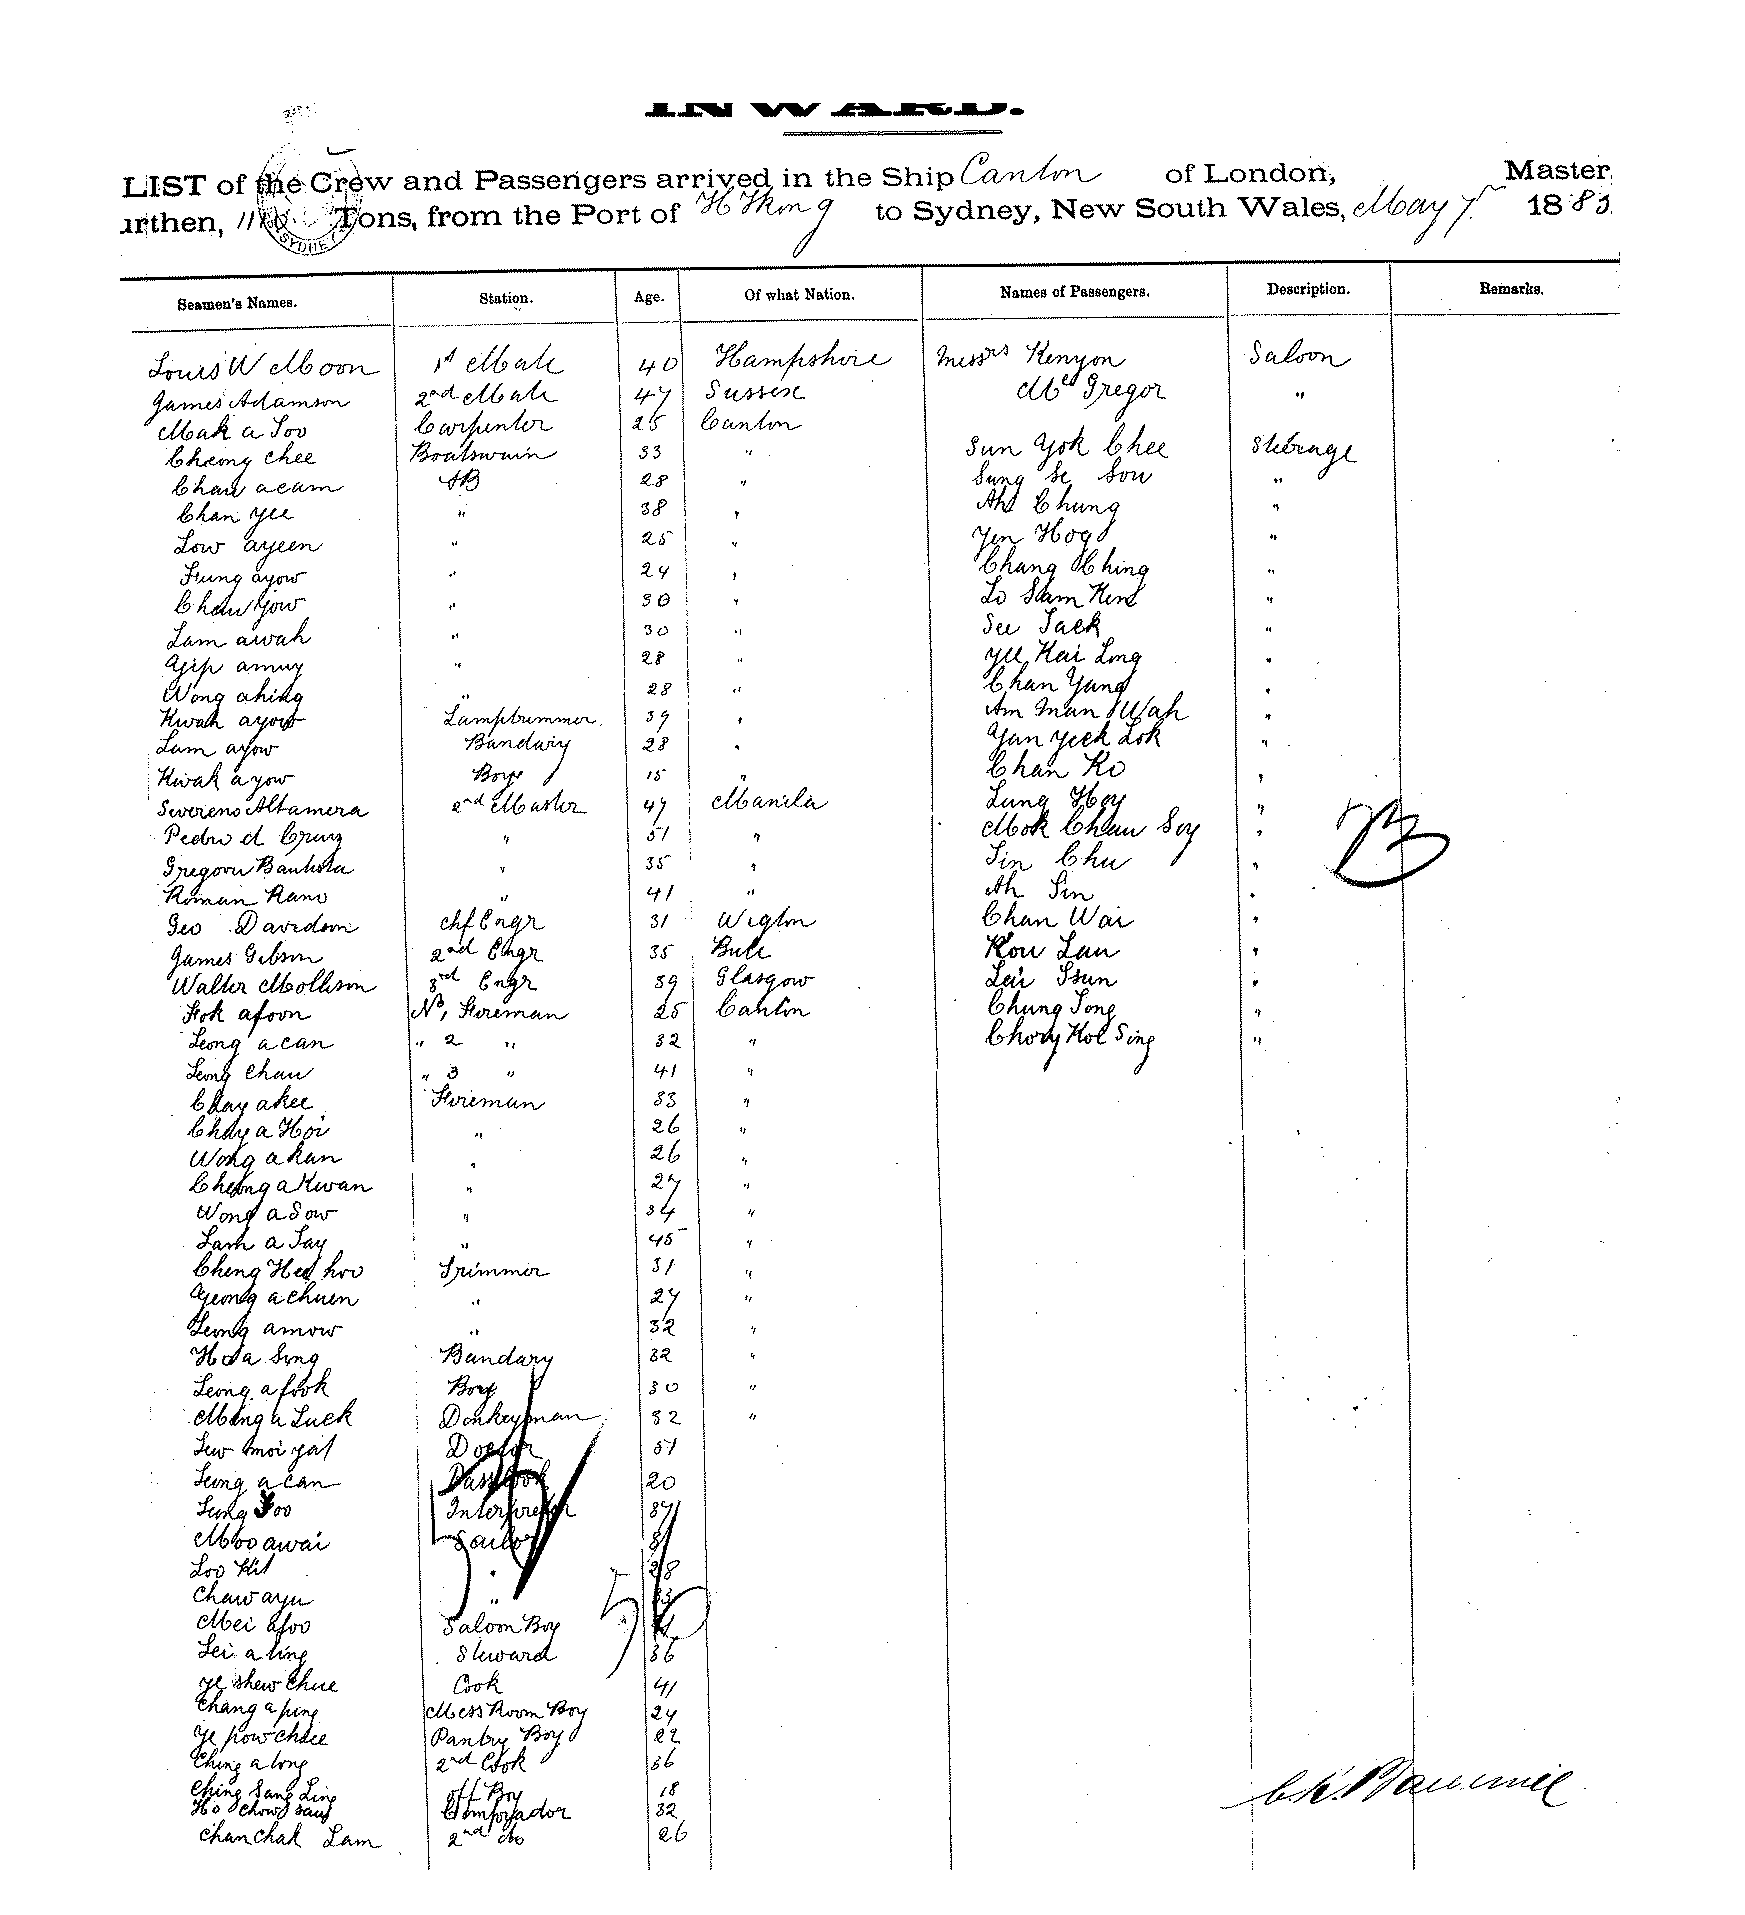 INWARD.
LIST of the Crew and Passengers arrived in the Ship Canton of London, Master
urthen, Tons, from the Port of HKong to Sydney, New South Wales, May 7 1883.
Seamen's Names. Station. Age. Of what Nation. Names of Passengers. Description. Remarks.
Louis W Moon 1st Mate 40 Hampshire Messrs Kenyon Saloon
James Adamson 2nd Mate 47 Sussex McGregor "
Mak a Soo Carpenter 25 Canton
Cheong Chee Boatswain 33 " Sun Yok Chee Steerage
Chau acam AB 28 " Sung Se Sou "
Chan Yee " 38 " Ah Chung "
Low ayeen " 25 " Yen Hog "
Fung ayow " 24 " Chang Ching "
Chau Yow " 30 " Lo Sam Kent "
Lam awah " 30 " See Jack "
Yip amuy " 28 " Yee Kai Ling "
Wong ahing " 28 " Chan Yung "
Kwah ayow Lamptrimmer 39 " Am Man Wah "
Lam ayow Bandary 28 " Yan Yeek Lok "
Kwak ayow Boy 15 " Chan Ko "
Severeno Altamera 2nd Master 47 Manila Lung Hoy "
Pedro d Cruz " 51 " Mok Chau Soy "
Gregorio Bautista " 35 " Sin Chu "
Roman Ramo " 41 " Ah Sin "
Geo Davidson Chf Engr 31 Wigton Chan Wai "
James Gibson 2nd Engr 35 Bute Kou Lau "
Walter Mollison 3rd Engr 39 Glasgow Lei Tsun "
Hok afoon No 1 Fireman 25 Canton Chung Tong "
Leong a can " 2 " 32 " Sing "
Leong Chau " 3 " 41 "
Chay akee Fireman 33 "
Chay a Hoi " 26 "
Wong a kan " 26 "
Cheong a Kwan " 27 "
Wong a Sow " 34 "
Lam a Tay " 45 "
Cheng Hee hoo Trimmer 31 "
Yeong a chuen " 27 "
Leong amow " 32 "
Ho a Sing Bandary 32 "
Leong a fook Boy 30 "
Ming a Luck Donkeyman 32 "
Lew moi yat Doctor 51
Leung a can Pass Cook 20
Leung Foo Interpreter 37
Moo awai Sailor
Loo Kit " 28
Chaw ayu " 33
Mei afoo Saloon Boy
Lei a ling Steward 36
Ye shew Chue Cook 41
Chang a ping Mess Room Boy 24
Ye pow chee Pantry Boy 22
Ching a long 2nd Cook 36
Ching Sang Ling Off Boy 18
Ho Chow Comprador 32
Chan Chak Lam 2nd do 26